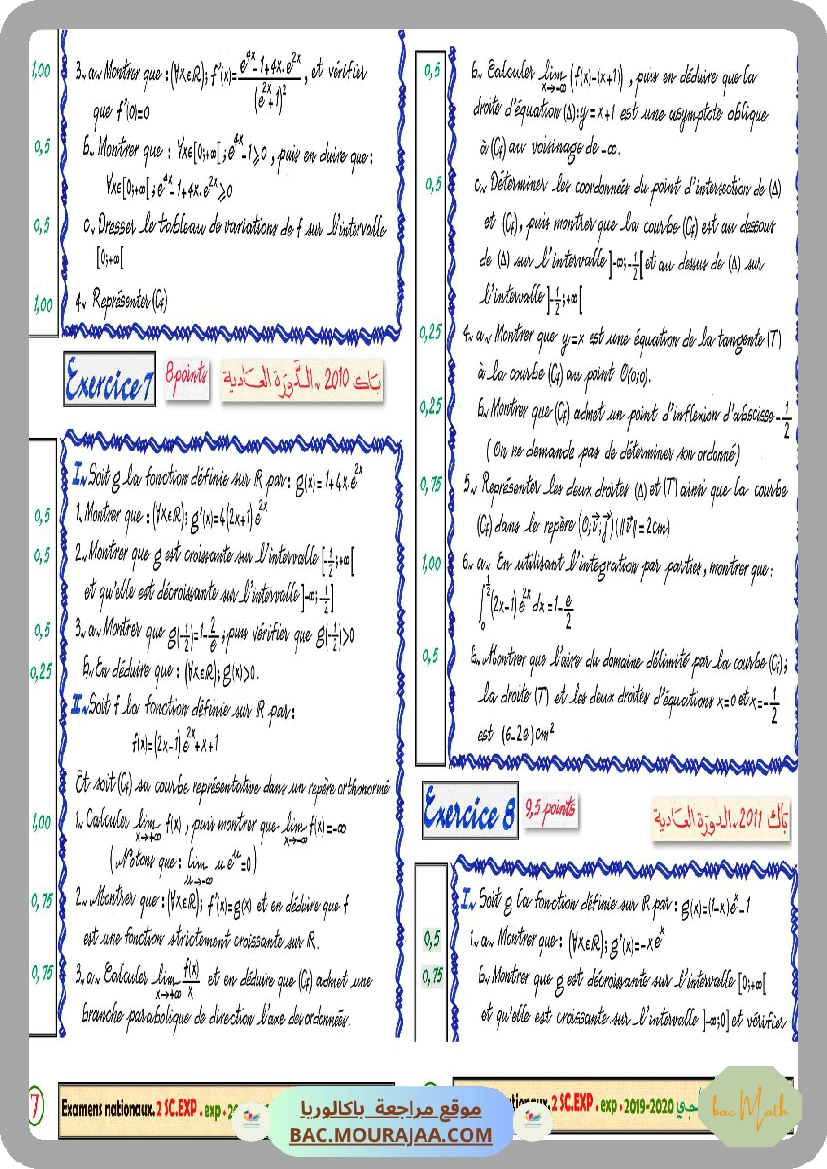 1,00
3. a. Montrer que : (∀x∈ℝ); f'(x)= (e^{4x}-1+4x.e^{2x})/(e^{2x}+1)^2 , et vérifier
que f'(0)=0
0,5
b. Montrer que : ∀x∈[0;+∞[ ; e^{4x}-1⩾0 , puis en duire que :
∀x∈[0;+∞[ ; e^{4x}-1+4x.e^{2x}⩾0
0,5
c. Dresser le tableau de variations de f sur l'intervalle
[0;+∞[
1,00
4. Représenter (Cf)
Exercice 7
8 points
باك 2010 ~ الدّورة العادية
I. Soit g la fonction définie sur ℝ par : g(x)=1+4x.e^{2x}
0,5
1. Montrer que : (∀x∈ℝ); g'(x)=4(2x+1)e^{2x}
0,5
2. Montrer que g est croissante sur l'intervalle [-1/2;+∞[
et qu'elle est décroissante sur l'intervalle ]-∞;-1/2]
0,5
3. a. Montrer que g(-1/2)=1-2/e ; puis vérifier que g(-1/2)>0
0,25
b. En déduire que : (∀x∈ℝ); g(x)>0.
II. Soit f la fonction définie sur ℝ par :
f(x)=(2x-1)e^{2x}+x+1
Et soit (Cf) sa courbe représentative dans un repère orthonormé
1,00
1. Calculer lim_{x→+∞} f(x) , puis montrer que lim_{x→-∞} f(x)=-∞
(Notons que : lim_{u→-∞} u e^u=0)
0,75
2. Montrer que : (∀x∈ℝ); f'(x)=g(x) et en déduire que f
est une fonction strictement croissante sur ℝ.
0,75
3. a. Calculer lim_{x→+∞} f(x)/x et en déduire que (Cf) admet une
branche parabolique de direction l'axe des ordonnés.
0,5
b. Calculer lim_{x→-∞} (f(x)-(x+1)) , puis en déduire que la
droite d'équation (Δ): y=x+1 est une asymptote oblique
à (Cf) au voisinage de -∞.
0,5
c. Déterminer les coordonnés du point d'intersection de (Δ)
et (Cf), puis montrer que la courbe (Cf) est au dessous
de (Δ) sur l'intervalle ]-∞;-1/2[ et au dessus de (Δ) sur
l'intervalle ]-1/2;+∞[
0,25
4. a. Montrer que y=x est une équation de la tangente (T)
à la courbe (Cf) au point O(0;0).
0,25
b. Montrer que (Cf) admet un point d'inflexion d'abscisse -1/2
(On ne demande pas de déterminer son ordonné)
0,75
5. Représenter les deux droites (Δ) et (T) ainsi que la courbe
(Cf) dans le repère (O;i⃗;j⃗) (||i⃗||=2cm)
1,00
6. a. En utilisant l'integration par parties, montrer que :
∫_0^{1/2} (2x-1)e^{2x} dx = 1-e/2
0,5
b. Montrer que l'aire du domaine délimité par la courbe (Cf);
la droite (T) et les deux droites d'équations x=0 et x=-1/2
est (6-2e)cm²
Exercice 8
9,5 points
باك 2011 ~ الدورة العادية
I. Soit g la fonction définie sur ℝ par : g(x)=(1-x)e^x-1
0,5
1. a. Montrer que : (∀x∈ℝ); g'(x)=-xe^x
0,75
b. Montrer que g est décroissante sur l'intervalle [0;+∞[
et qu'elle est croissante sur l'intervalle ]-∞;0] et vérifier
7
Examens nationaux. 2 SC.EXP . exp
2 SC.EXP . exp . 2019-2020
bac Math
موقع مراجعة باكالوريا
BAC.MOURAJAA.COM